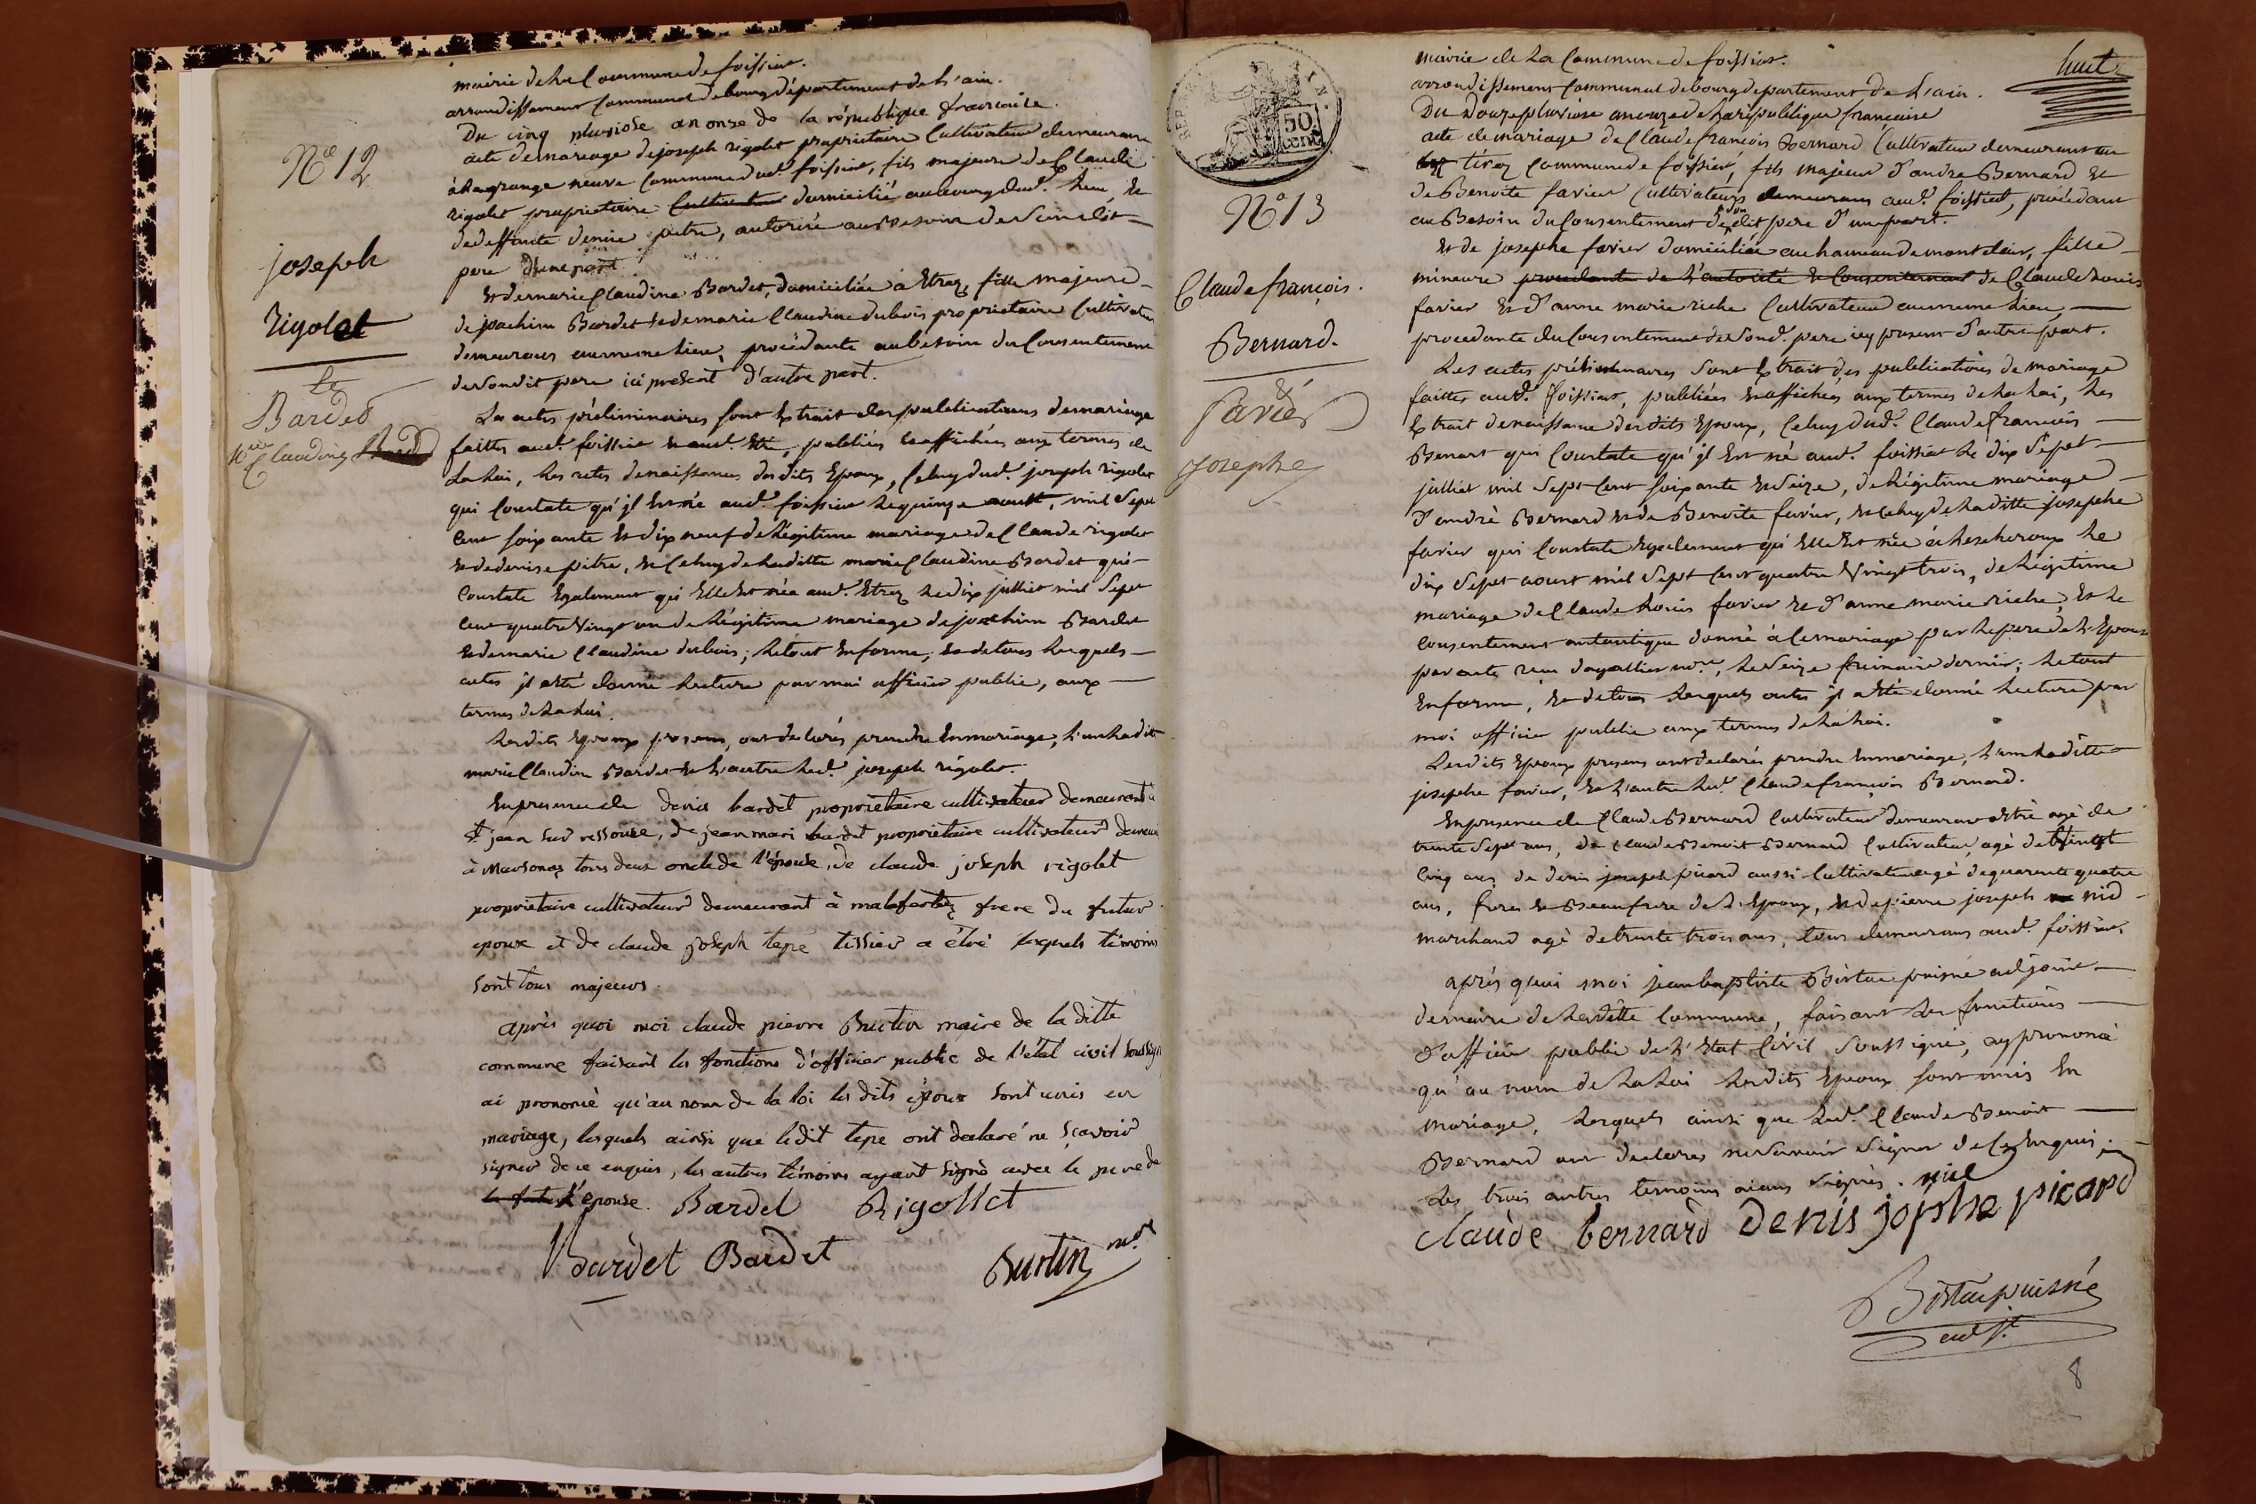 mairie de la Commune de foissiat.
arrondissement Communal de bourg département de L'ain.
Du cinq pluviose an onze de la république francaise.
N° 12
acte de mariage de joseph rigolet propriétaire Cultivateur demeurant
à la grange neuve Commune dud. foissiat, fils majeure de Claude
rigolet propriétaire Cultivateur domicilié au bourg dud. Lieu, et
de deffunte denise pitre, autorisé au Besoin de Son dit
joseph
rigolet
pere d'une part.
Et de marie Claudine Bardet, domiciliée à Etrez, fille majeure
de joachim Bardet et de marie Claudine dubois propriétaire Cultivateur
demeurans au meme lieu, procédante au besoin du Consentement
de Son dit pere ici présent d'autre part.
et
Bardet
M.ie Claudine
Les actes préliminaires sont Extrait des publications de mariage
faittes aud. foissiat et aud. Etr, publiées et affichées aux termes de
La Loi, Les actes de naissances des dits Epoux, Celuy dud. joseph rigolet
qui Constate qu'il Est né aud. foissiat le quinze aoust, mil Sept
Cent soixante et dix neuf de Légitime mariage de Claude rigolet
et de denise pitre, et Celuy de laditte marie Claudine Bardet qui
Constate Egalement qu'Elle Est née aud. Etrez le dix juillet mil Sept
Cent quatre Vingt un de Légitime mariage de joachim Bardet
et de marie Claudine dubois; Le tout En forme, et de tous Lesquels
actes il a été donné Lecture par moi officier public, aux
termes de La Loi.
Lesdits Epoux presens, ont declarés prendre En mariage, L'un Laditte
marie Claudine Bardet et L'autre Led. joseph rigolet.
En presence de denis bardet propriétaire cultivateur demeurant à
St jean sur ressouse, de jean mari bardet propriétaire cultivateur demeurant
à Marsonas tous deux oncle de l'épouse, de claude joseph rigolet
propriétaire cultivateur demeurant à malafertaz frere du futur
epoux et de claude joseph tepe tissier a étré lesquels témoins
sont tous majeurs.
après quoi moi claude pierre Burtin maire de la ditte
commune faisant les fonctions d'officier public de l'état civil soussigné
ai prononcé qu'au nom de la loi les dits époux sont unis en
mariage, lesquels ainsi que ledit tepe ont declaré ne sçavoir
signer de ce enquis, les autres témoins ayant signé avec le pere de
l'epouse. Bardel Rigollet
Bardet Bardet Burtin m.re
huit
mairie de La Commune de foissiat.
arrondissement Communal de bourg département de L'ain.
Du Douze pluviose an onze de La république francaise
acte de mariage de Claude françois Bernard Cultivateur demeurant au
tiroz Commune de foissiat, fils majeur d'andre Bernard et
de Benoite favier Cultivateurs demeurans aud. foissiat, procédant
au Besoin du Consentement de son dit pere d'une part.
50 cent.
N° 13
Claude françois.
Bernard.
&
favier
josephe
Et de josephe favier domiciliée au hameau de montclair, fille
mineure procedante de L'autorité et Consentement de Claude Louis
favier Et d'anne marie riche Cultivateur au meme Lieu
procedante du Consentement de Sond. pere icy present d'autre part.
Les actes préliminaires sont Extrait des publications de mariage
faittes aud. foissiat, publiées et affichées aux termes de La Loi, Les
Extrait de naissance desdits Epoux, Celuy dud. Claude francois
Benart qui Constate qu'il Est né aud. foissiat Le dix Sept
juillet mil Sept Cent soixante et Seize, de Légitime mariage
d'andré Bernard et de Benoite favier, et Celuy de Laditte josephe
favier qui Constate Egalement qu'Elle Est née à Lescheroux Le
dix Sept aoust mil Sept Cent quatre Vingt trois, de Légitime
mariage de Claude Louis favier et d'anne marie riche, Et Le
Consentement autantique donné à Ce mariage par Le pere de L'Epoux
par acte reçu dagallier no.re, Le Seize frimaire dernier; Le tout
En forme, Et de tous Lesquels actes il a été donné Lecture par
moi officier public aux termes de La Loi.
Lesdits Epoux presens ont declarés prendre En mariage, L'un Laditte
josephe favier, Et L'autre Led. Claude françois Bernard.
En presence de Claude Bernard Cultivateur demeurant agé de
trente Sept ans, de Claude Benoit Bernard Cultivateur, agé de Vingt
Cinq ans, de denis joseph picard aussi Cultivateur agé de quarente quatre
ans, freres et Beaufrere de L'Epoux, et de pierre joseph nid
marchand agé de trente trois ans, tous demeurans aud. foissiat.
après quoi moi jean baptiste puisné adjoint
de maire de Laditte Commune, faisant Les fonctions
d'officier public de L'Etat Civil Soussigné, ay prononcé
qu'au nom de La Loi Lesdits Epoux sont unis En
mariage, Lesquels ainsi que Led. Claude Benoit
Bernard ont declarés ne Savoir Signer de Ce Enquis,
Les trois autres temoins aiant Signés. niel
claude bernard denis josphe picard
puisné
adj.t
8